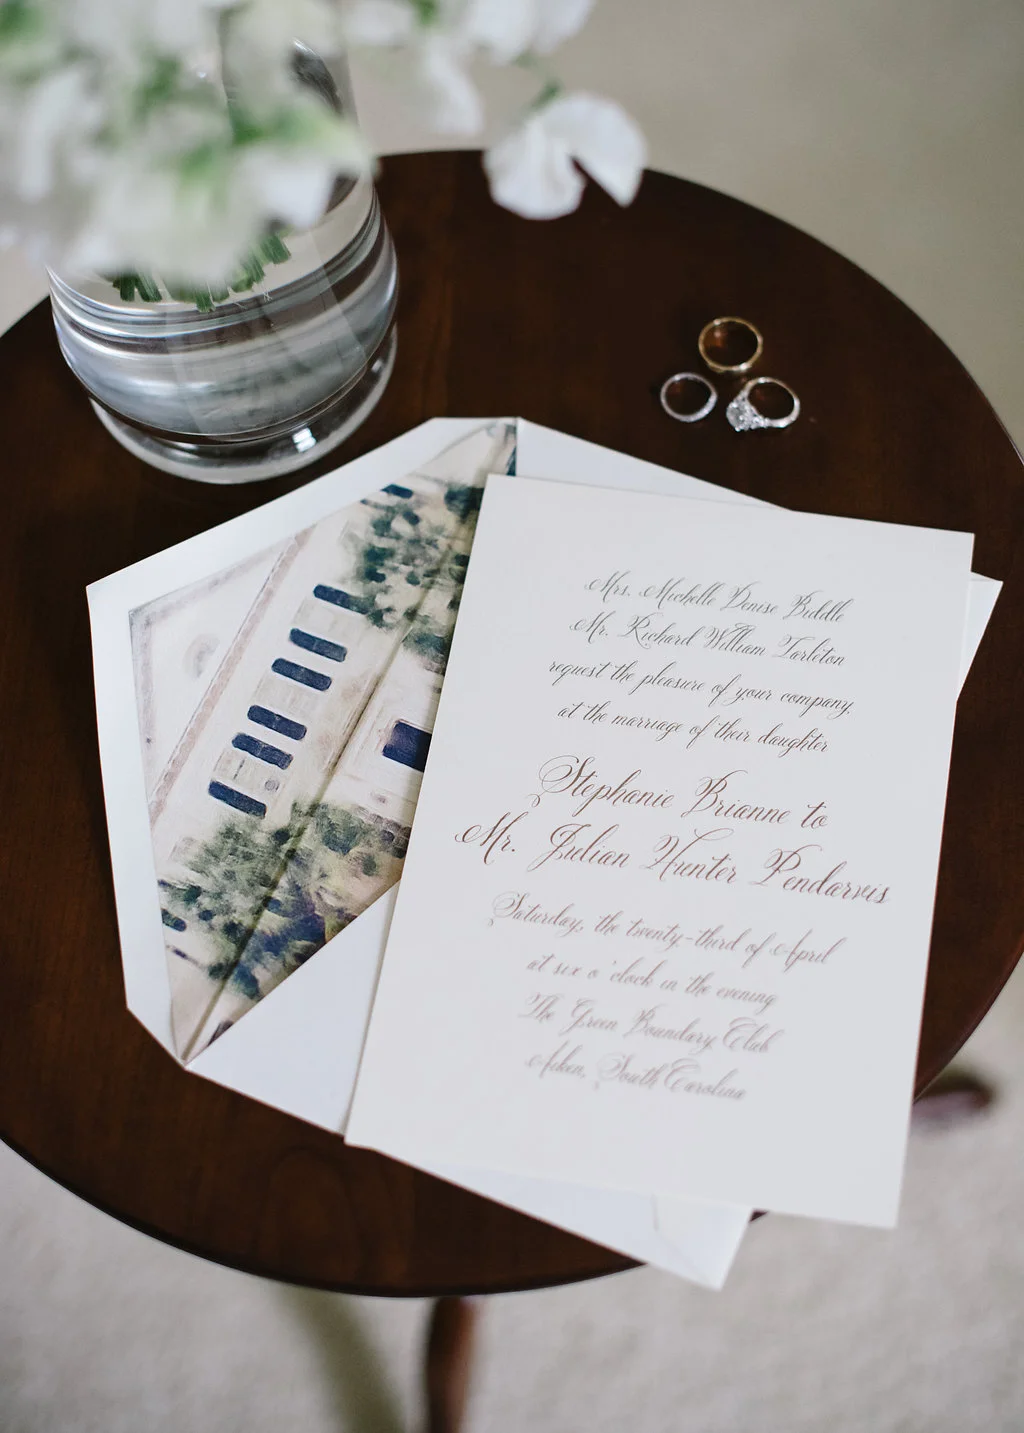 Mrs. Michelle Denise Biddle
Mr. Richard William Tarleton
request the pleasure of your company
at the marriage of their daughter
Stephanie Brianne to
Mr. Julian Hunter Pendarvis
Saturday, the twenty-third of April
at six o'clock in the evening
The Green Boundary Club
Aiken, South Carolina